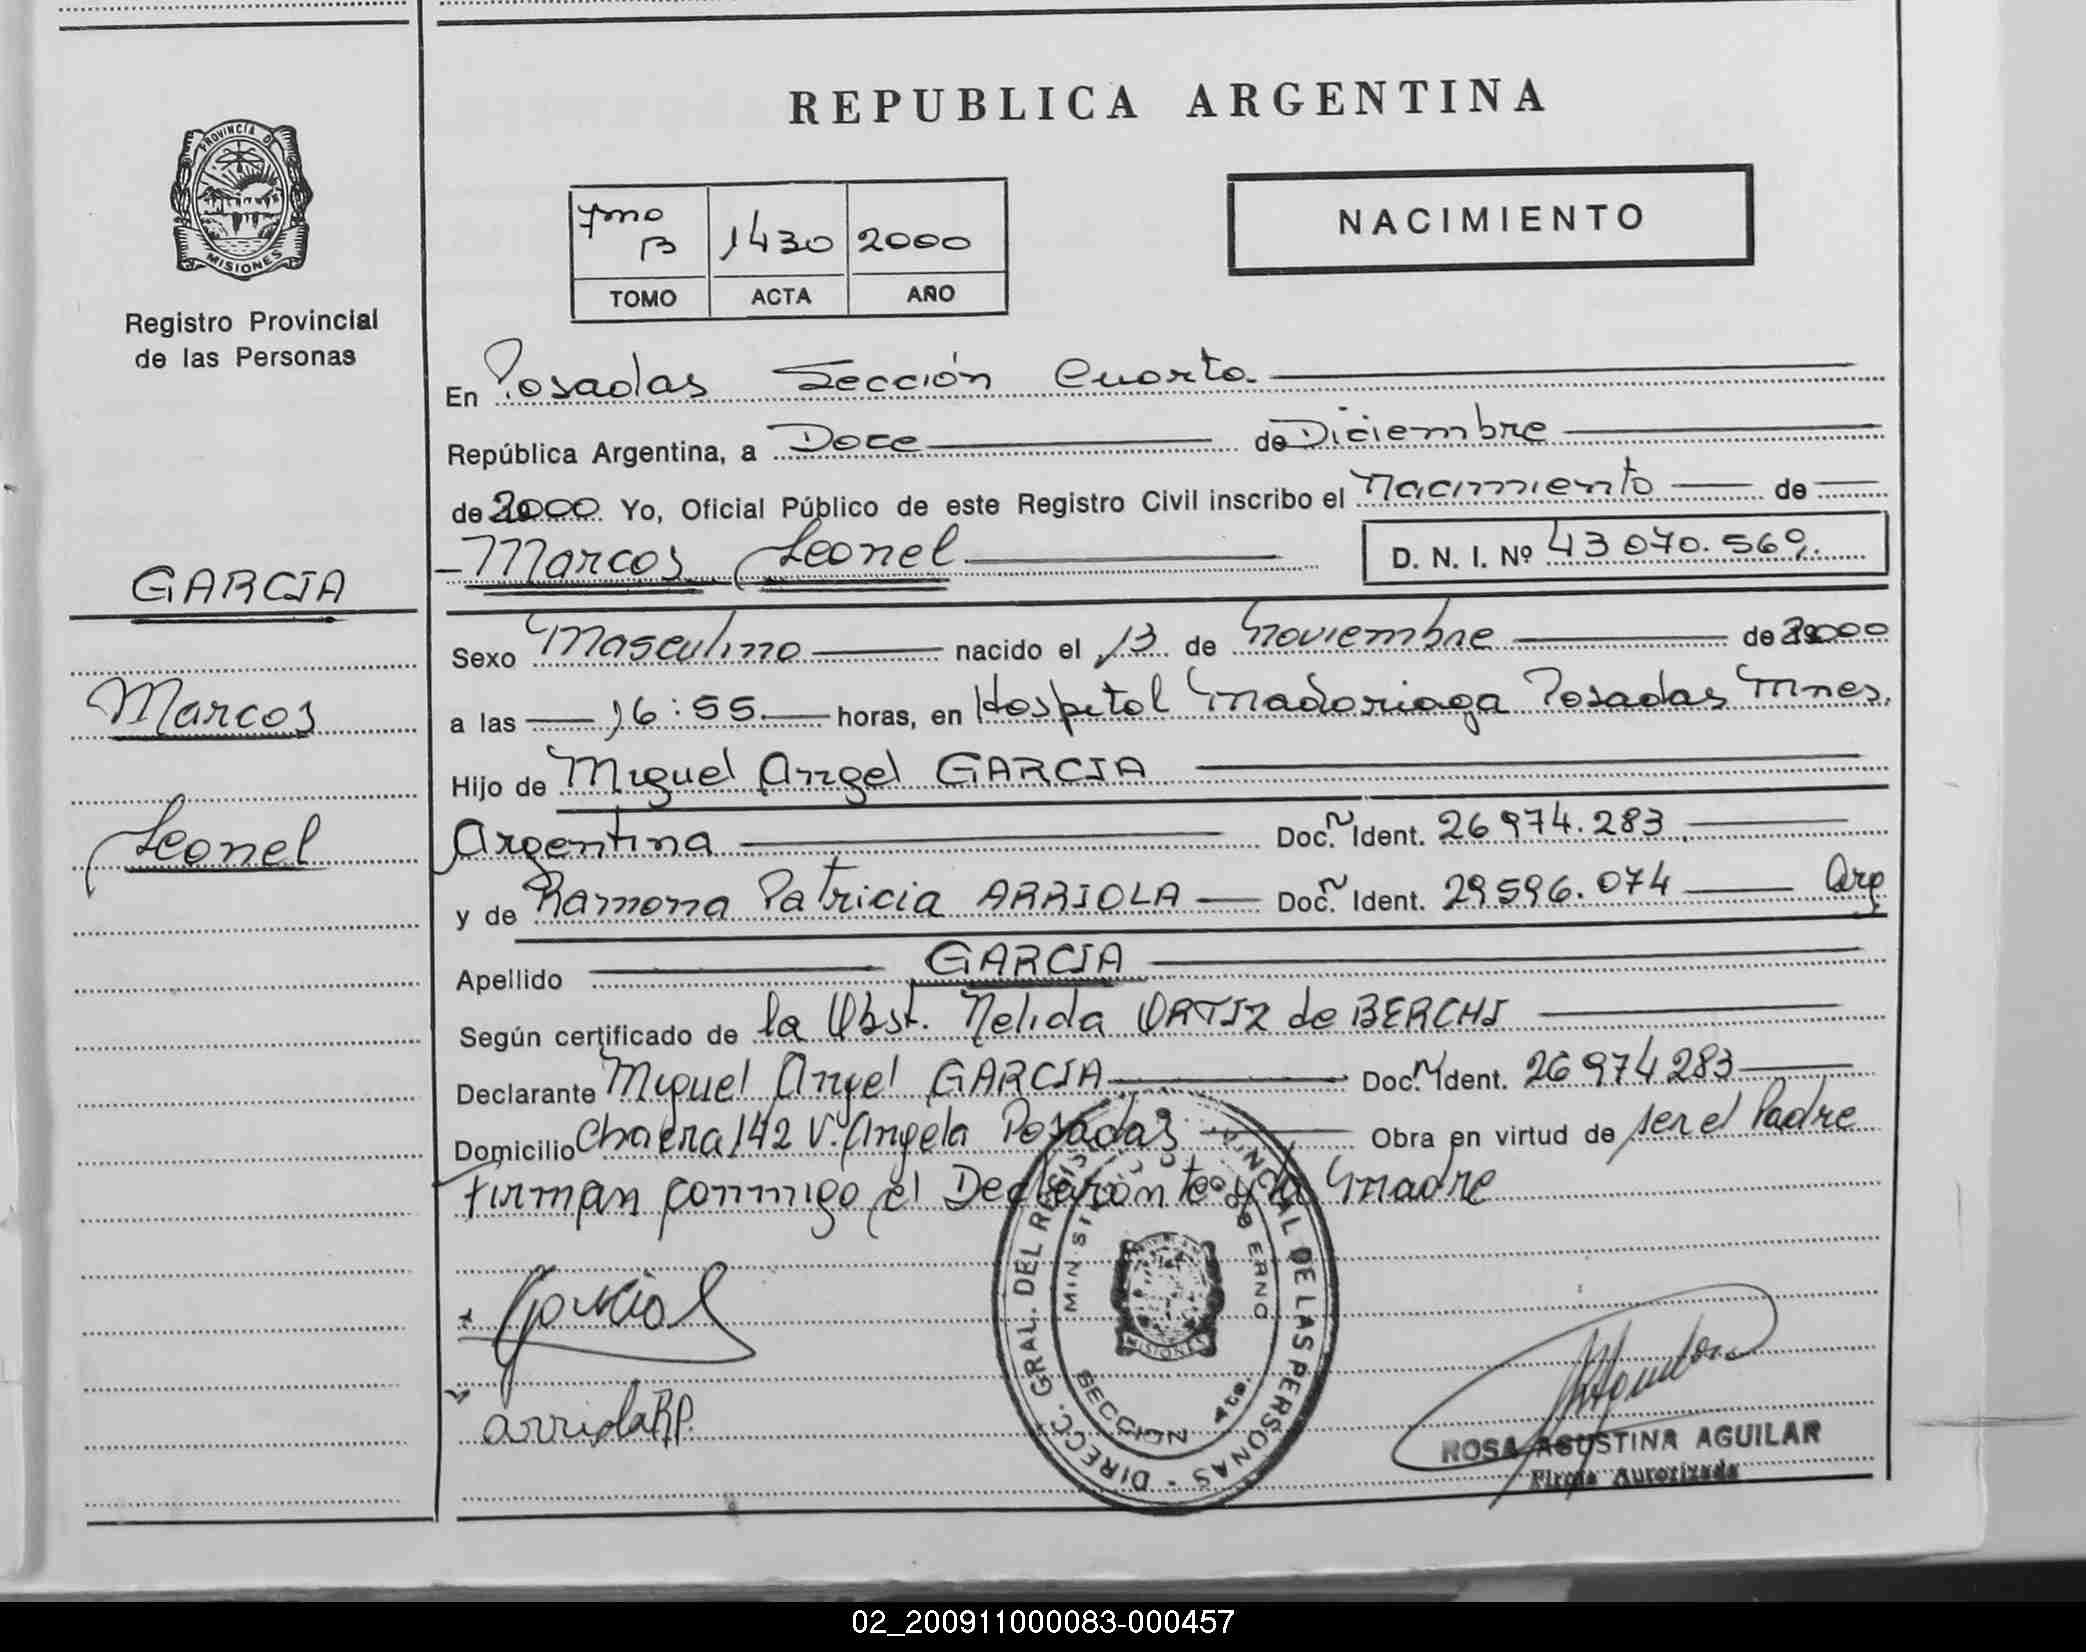 REPUBLICA ARGENTINA
PROVINCIA DE
MISIONES
Registro Provincial
de las Personas
NACIMIENTO
7mo B 1430 2000
TOMO ACTA AÑO
En Posadas Sección Cuarta
República Argentina, a Doce de Diciembre
de 2000 Yo, Oficial Público de este Registro Civil inscribo el Nacimiento de
Marcos Leonel D. N. I. Nº 43 070.569.
GARCIA
Marcos
Leonel
Sexo Masculino nacido el 13 de Noviembre de 2000
a las 16:55 horas, en Hospital Madariaga Posadas Mnes.
Hijo de Miguel Angel GARCIA
Argentina Doc. N Ident. 26 974.283
y de Ramona Patricia ARRIOLA Doc. N Ident. 29.596.074 Arg
Apellido GARCIA
Según certificado de la Obst. Nelida ORTIZ de BERCHI
Declarante Miguel Angel GARCIA Doc. N Ident. 26 974 283
Domicilio Chacra 142 V. Angela Posadas Obra en virtud de ser el Padre
Firman conmigo el Declarante y la Madre
DIRECC. GRAL. DEL REGISTRO PROVINCIAL DE LAS PERSONAS
MINISTERIO DE GOBIERNO
MISIONES
SECCION 4ta.
Garcia
arriola R.P.
ROSA AGUSTINA AGUILAR
Firma Autorizada
02_200911000083-000457